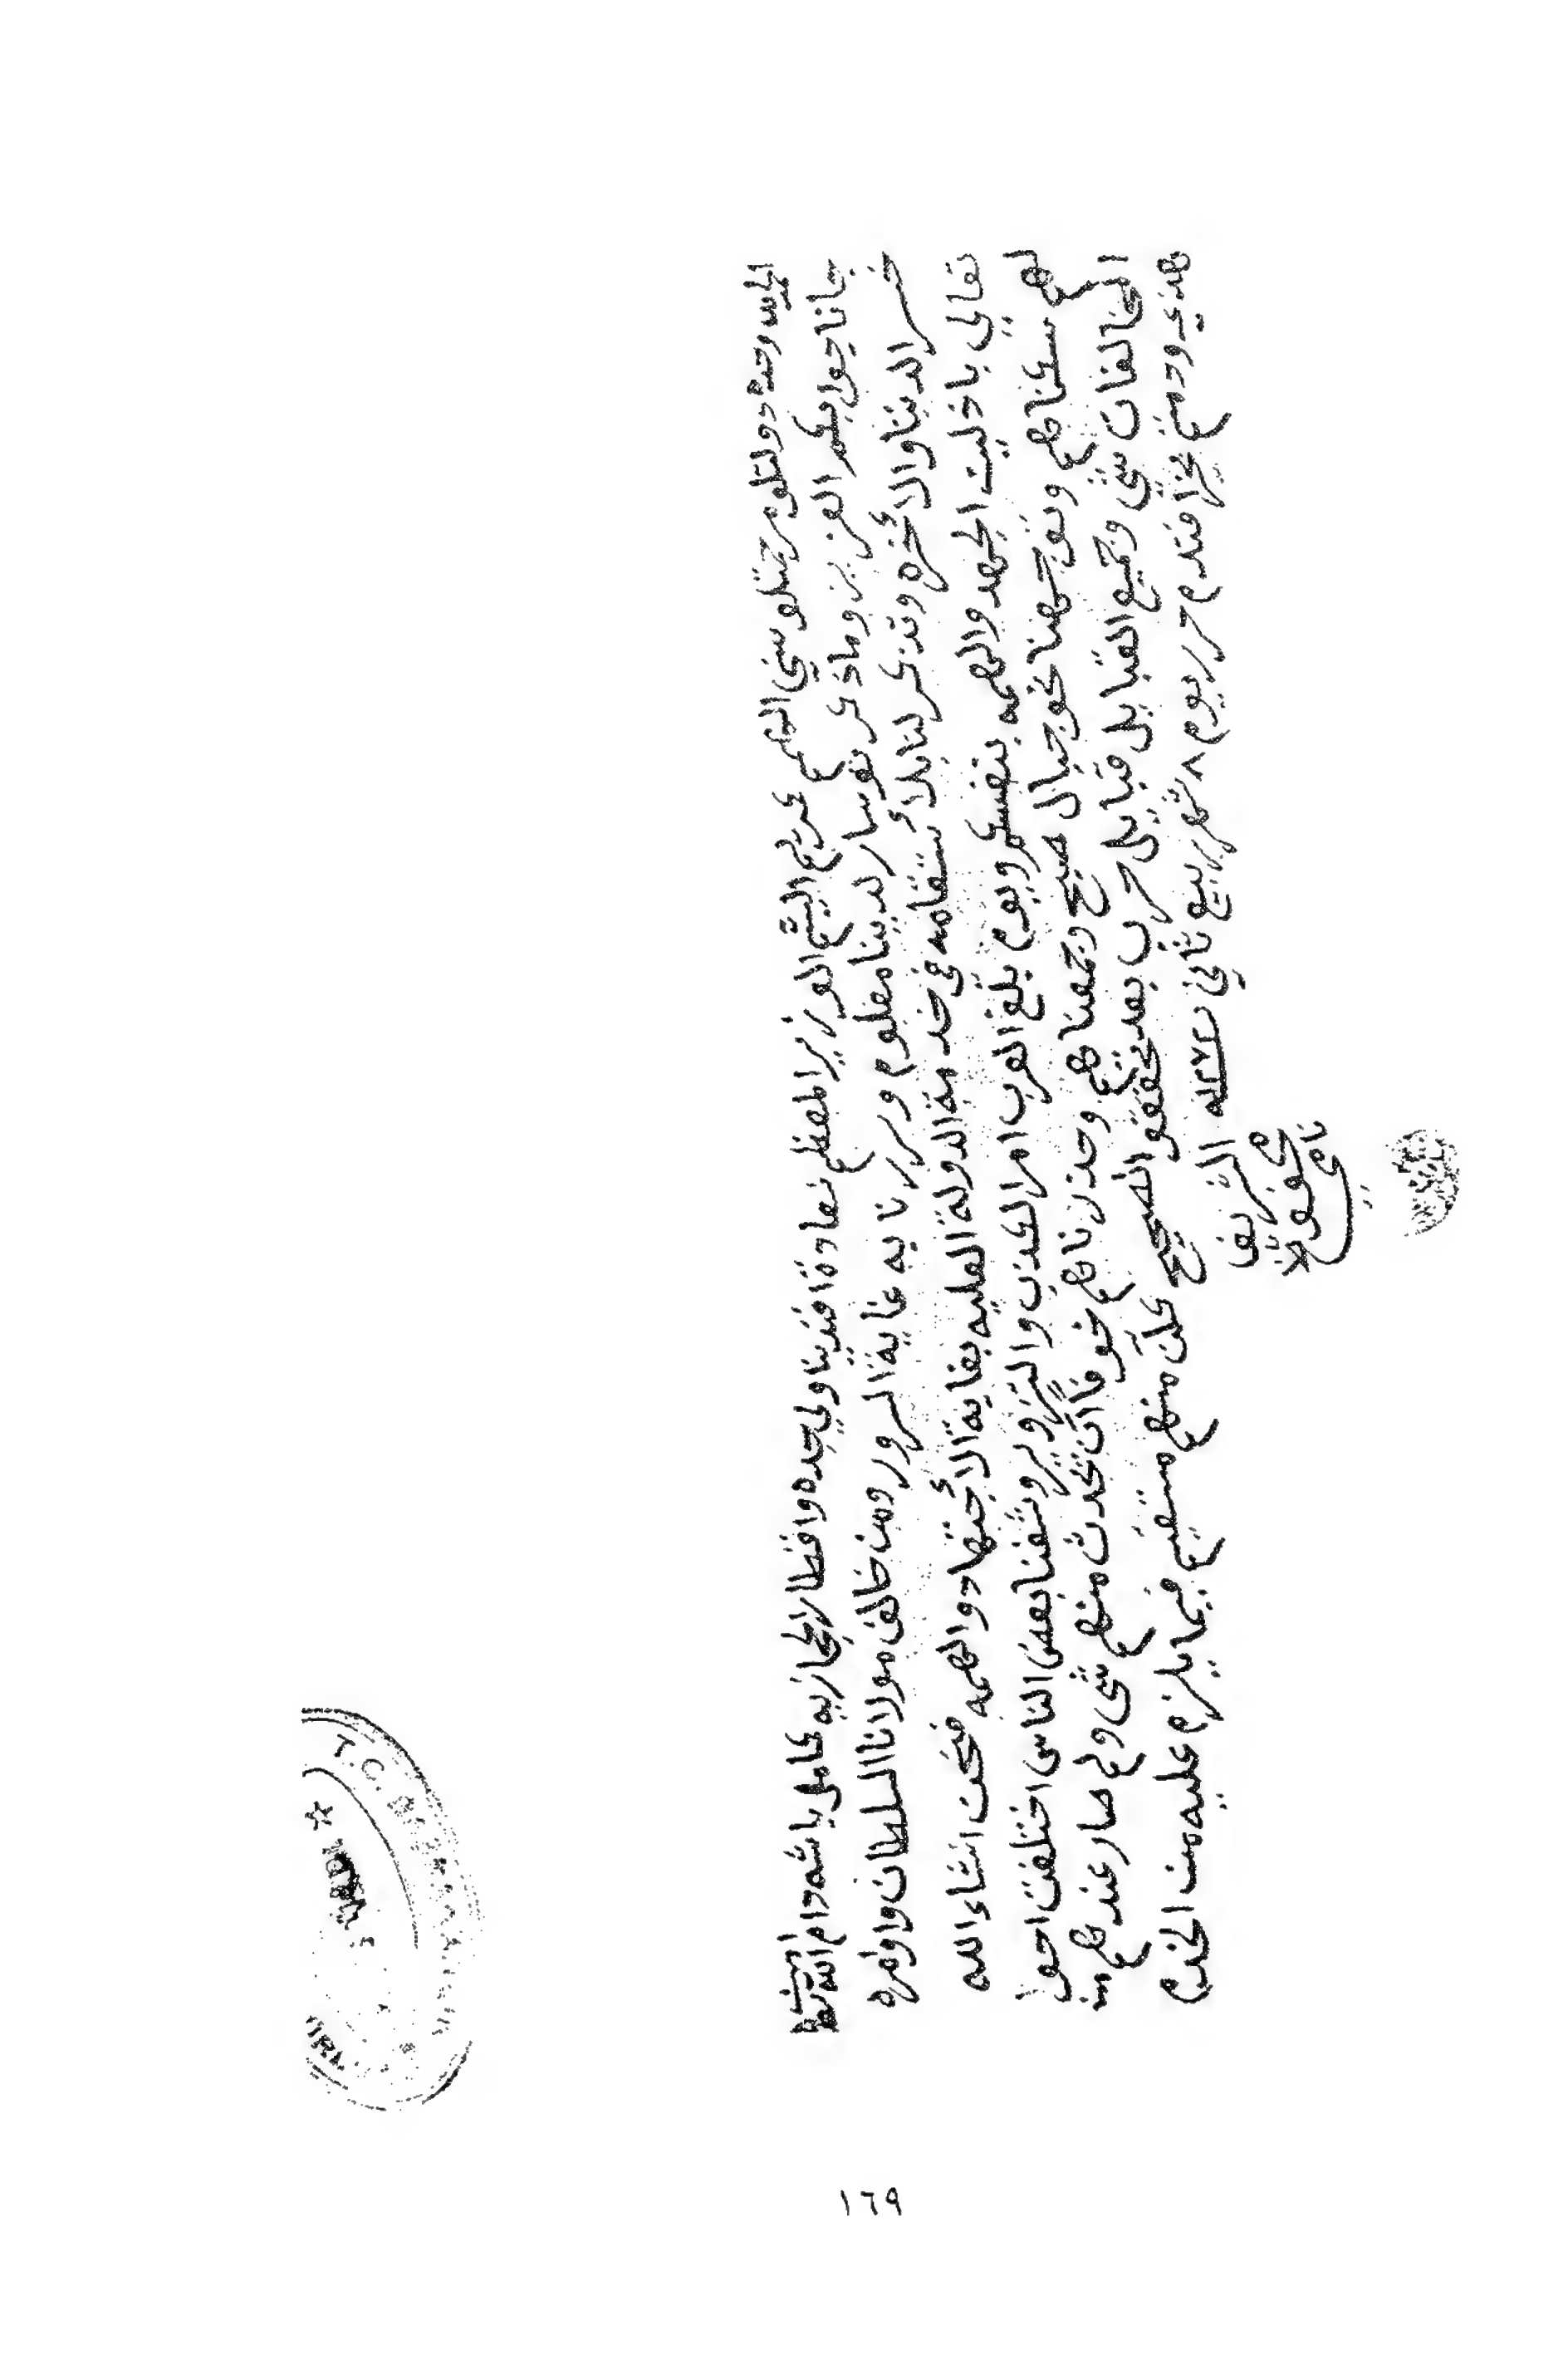 الحمد لله وحده دولتلو مرحمتلو سني الهمم كريم الشيم الوزير المعظم سعادة افندينا ولي جده واقطار الحجازيه كامل باشه دام الله تعا امين
جانا جوابكم العزيز وماذكرتو سار لدينا معلوم وسررنا به غاية السرور ومن خالف مولانا السلطان واوامره
خسر الدنيا والأخره وتذكر لنا بلأستقامه في خدمة الدولة العليه بغاية الأجتهاد والهمه فنحن انشاء الله
تعالى باذلين الجهد والهمه بنفسكم ويوم بلغ العرب امر الكذب والتزوير وشفنا بعض الناس اختلفت احوا
لهم سكناهم وتوجهنا نحو جبال صبح وجمعناهم وحذرناهم خوفاً ان تحدث منهم شي ولم صار عندهم من
المخالفات شي وجميع القبايل قبايل حرب بعد تحققو الصحيح كلن منهم مستقيم فيما يلزم عليه من الخدم
هذي ودمتم بخير افندم حرر يوم ٨ شهر ربيع ثاني ١٢٧٢ سنه
الشريف
محفوظ
نامي
١٦٩